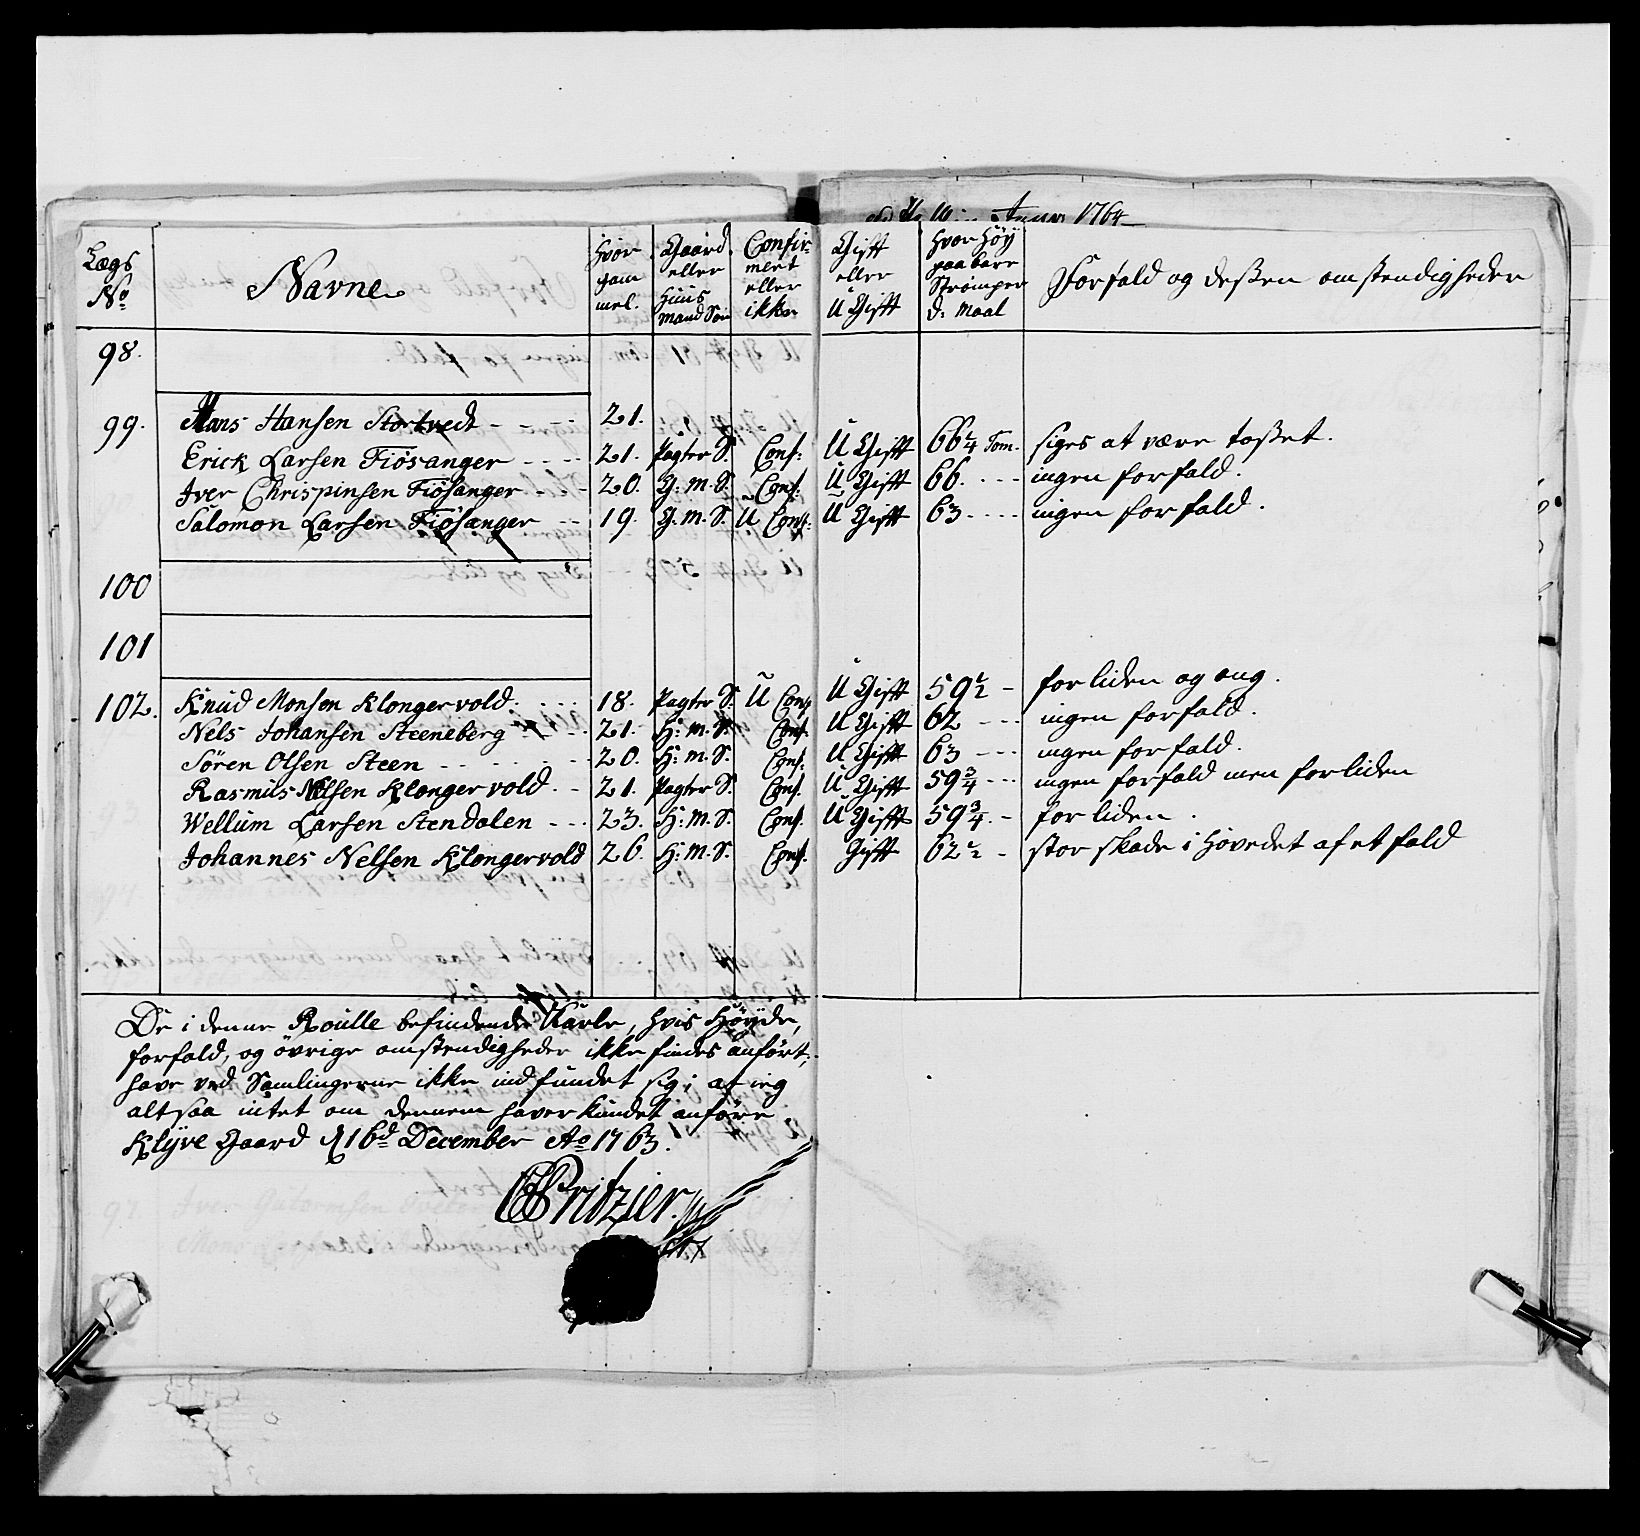 Anno 1764
Lægs No | Navne | Hvor gam mel. | Gaard eller Huus mand Søn | Confir- meret eller ikke | Gifft eller U Gifft | Hvor Høy paa bare Strömper d: Maal | Forfald og deßen omstendigheder
98.
99. Hans Hansen Stortvedt - - - 21.
Erick Larsen Fiösanger - - - - 21. Pagter S. Conf: U Gifft 66 1/4 Tom. siges at være toßet.
Iver Chrispinsen Fiösanger - - 20. G: m. S. Conf: U Gifft 66. - - - ingen forfald.
Salomon Larsen Fiösanger - - 19. G. m. S. U Conf: U Gifft 63 - - - - ingen forfald.
100
101
102. Knud Monsen Klongervold. - - - 18. Pagter S. U Conf U Gifft 59 1/2 - for liden og ung.
Nels Johansen Steeneberg - - - 21. H: m. S. Conf. U Gifft 62 - - - ingen forfald.
Sören Olsen Steen - - - - - - 20. H: m. S. Conf: U Gifft 63 - - - ingen forfald.
Rasmus Nelsen Klongervold. - 21. Pagter S. Conf. U Gifft 59 3/4 - - - ingen forfald men for liden
Wellum Larsen Stendalen - - - 23. H: m. S. Conf. U Gifft 59 3/4. - for liden.
Johannes Nelsen Klongervold 26. H: m. S. Conf. Gifft 62 1/2 - stor skade i Hovedet af et fald
De i denne Roulle befindende Karle, hvis Höyde,
forfald, og övrige omstendigheder ikke findes anfört,
have ved Samlingerne ikke indfundet sig; at ieg
altsaa intet om dennem haver kundet anföre.
Klÿve Gaard d 16d December Ao 1763.
Pritzier.